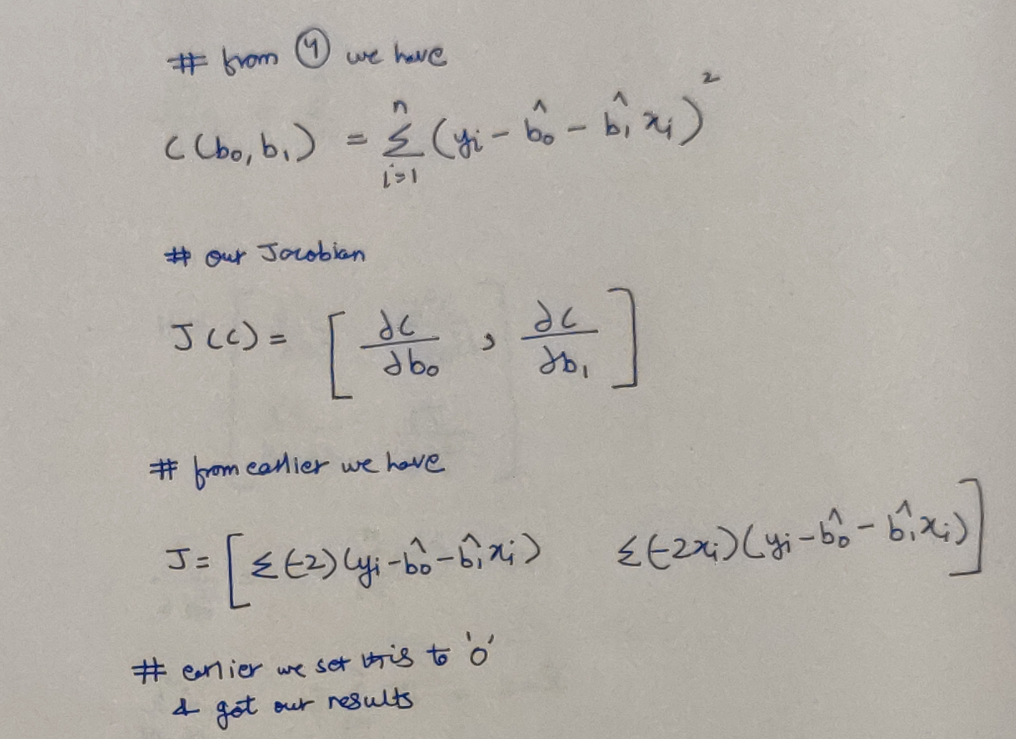 # from ④ we have
C(b₀, b₁) = Σᵢ₌₁ⁿ (yᵢ - b̂₀ - b̂₁ xᵢ)²
# our Jacobian
J(C) = [ ∂C/∂b₀ , ∂C/∂b₁ ]
# from earlier we have
J = [ Σ(-2)(yᵢ - b̂₀ - b̂₁ xᵢ) Σ(-2xᵢ)(yᵢ - b̂₀ - b̂₁ xᵢ) ]
# earlier we set this to '0'
& got our results